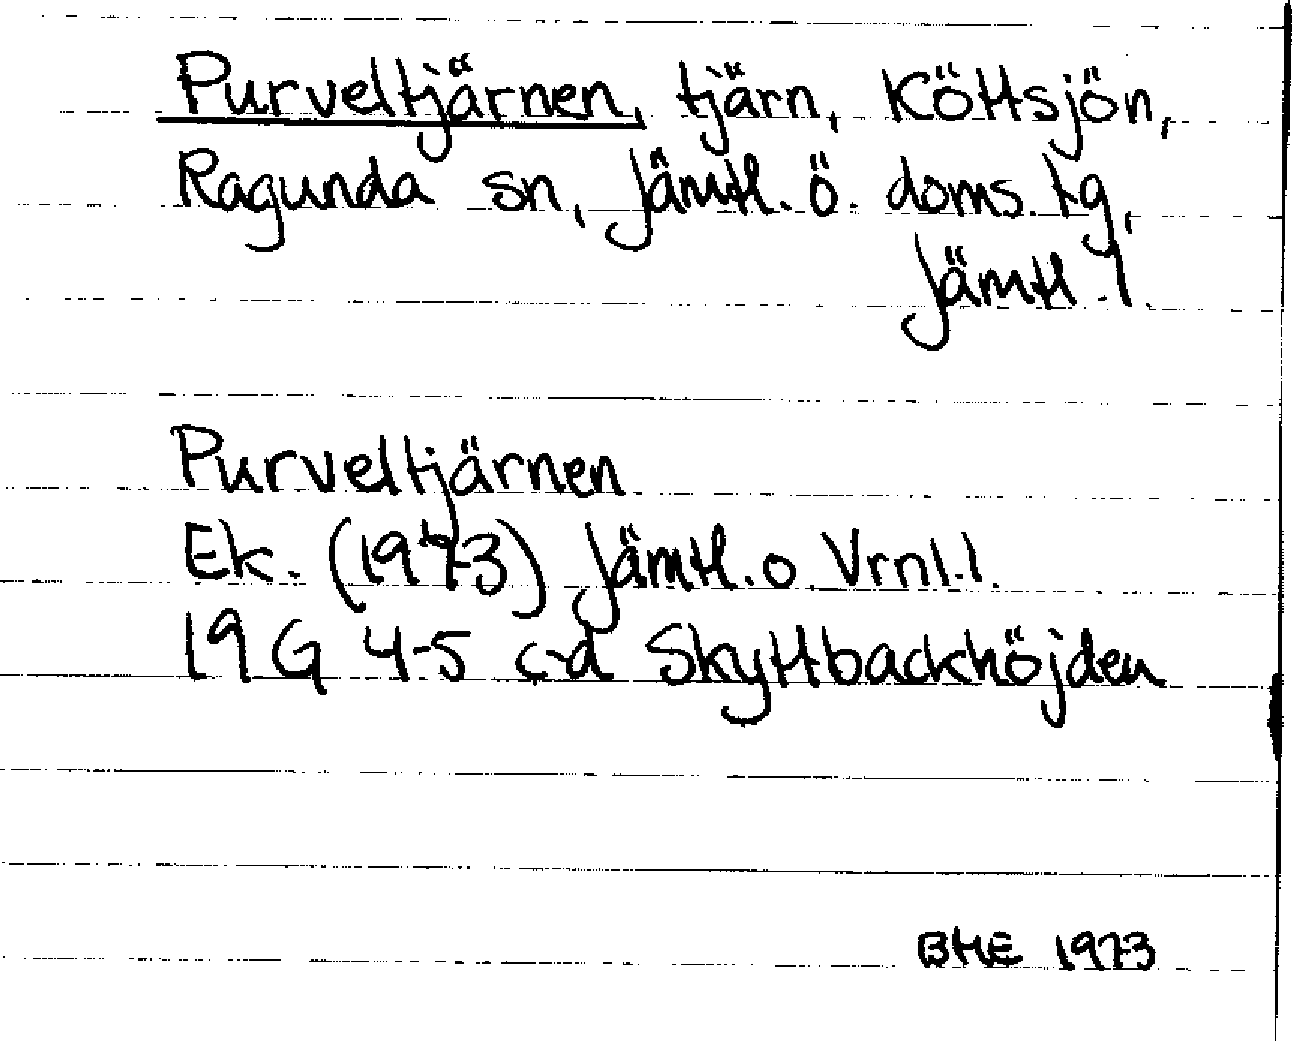 Purveltjärnen, tjärn, Köttsjön,
Ragunda sn, Jämtl. ö. doms. tg,
Jämtl. l.
Purveltjärnen
Ek. (1973) Jämtl. o. Vrnl. l.
19 G 4-5 c-d Skyttbackhöjden
BHE 1973